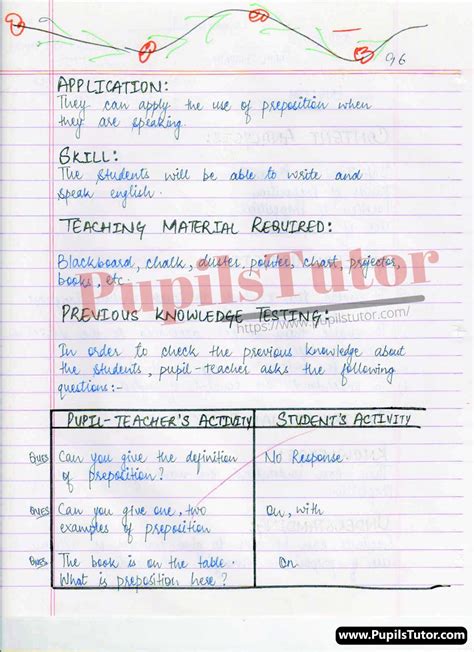 96
APPLICATION:
They can apply the use of preposition when
they are speaking.
SKILL:
The students will be able to write and
speak english.
TEACHING MATERIAL REQUIRED:
Blackboard, chalk, duster, pointer, chart, projector,
books, etc.
PupilsTutor
https://www.pupilstutor.com/
PREVIOUS KNOWLEDGE TESTING:
In order to check the previous knowledge about
the students, pupil-teacher asks the following
questions:-
PUPIL-TEACHER'S ACTIVITY STUDENT'S ACTIVITY
Ques Can you give the definition No Response
of preposition?
Ques Can you give one, two on, with
examples of preposition
Ques The book is on the table. on
What is preposition here?
www.PupilsTutor.com